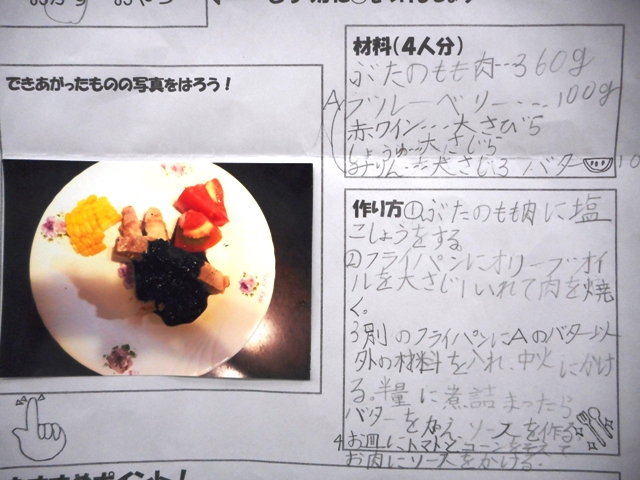 できあがったものの写真をはろう！
材料(4人分)
ぶたのもも肉…360g
ブルーベリー…100g
A
赤ワイン…大さじ5
しょうゆ…大さじ5
みりん…大さじ3 バター 10
作り方①ぶたのもも肉に塩
こしょうをする
②フライパンにオリーブオイ
ルを大さじ1いれて肉を焼
く。
3別のフライパンにAのバター以
外の材料を入れ、中火にかけ
る。半量に煮詰まったら
バターを加え ソースを作る
4お皿にトマトとコーンをそえて
お肉にソースをかける。